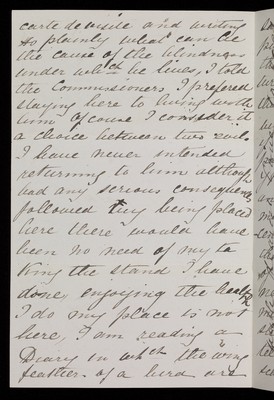 carte de visite and writing
so plainly what can be
the cause of the blindness
under which he lives, I told
the Commissioners I prefered
staying here to living with
him of course I consider it
a choice between two evils
I have never intended
returning to him although
had any serious consequences
followed my being placed
here there would have
been no need of my ta
king the stand I have
done, enjoying the health
I do my place is not
here, I am reading a
Diary in which the wing
feathers of a bird are